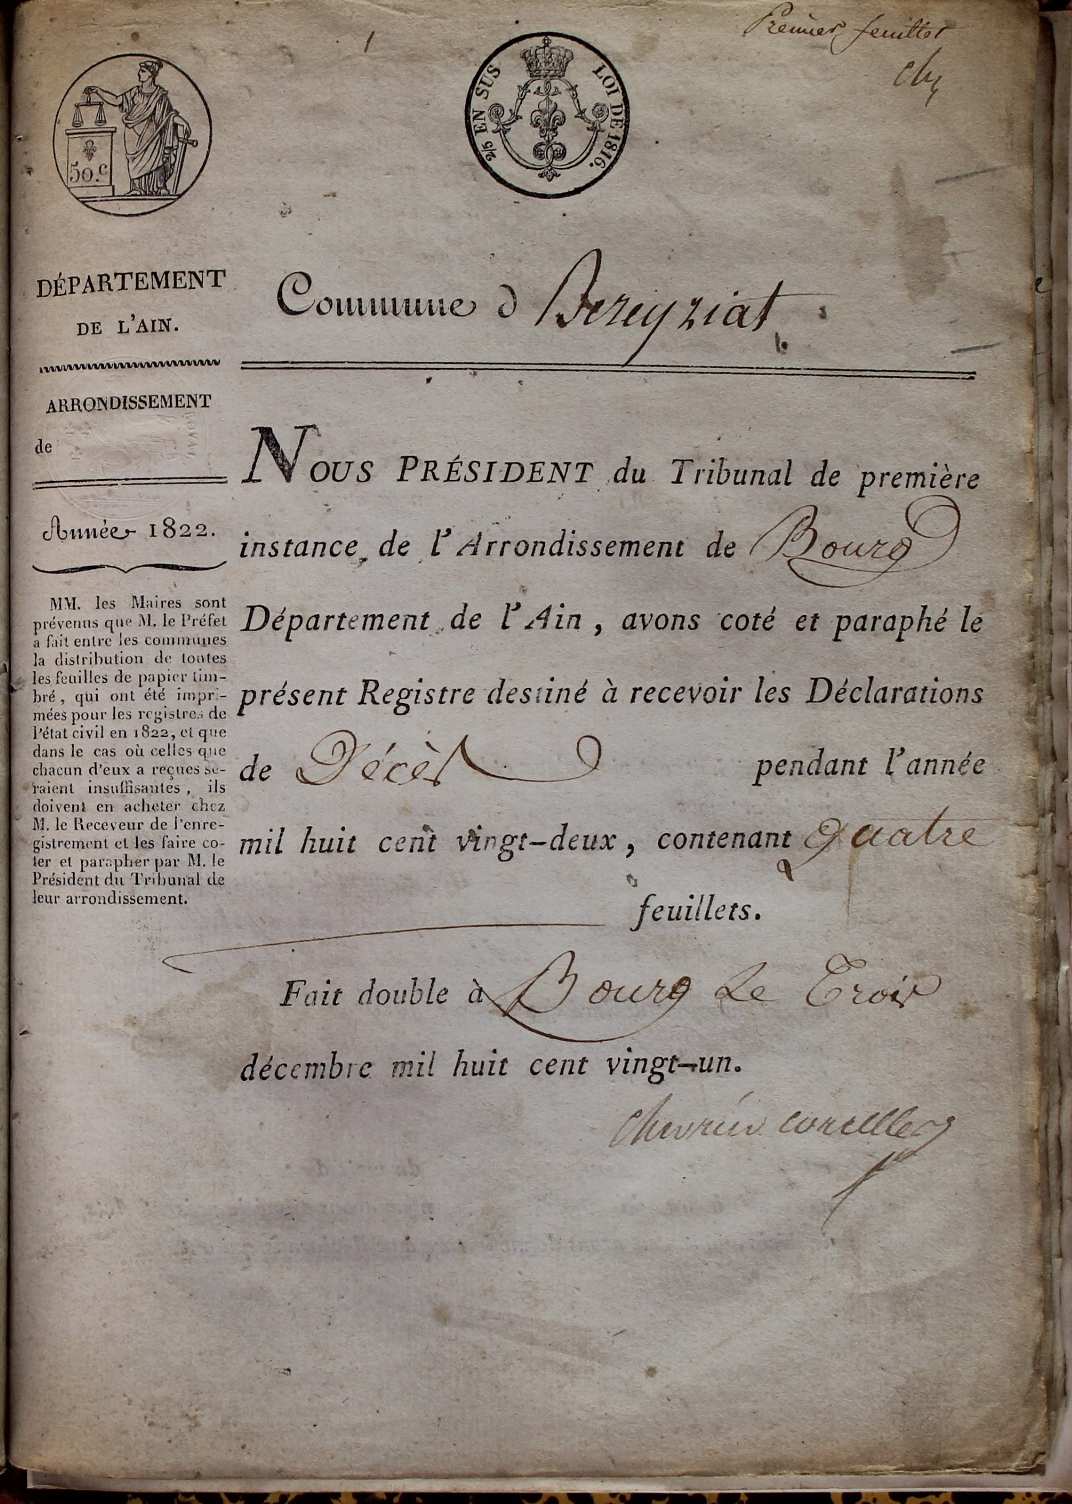 1
Premier feuillet
50.c
2/5 EN SUS LOI DE 1816.
DÉPARTEMENT
DE L'AIN.
ARRONDISSEMENT
de
Année 1822.
MM. les Maires sont
prévenus que M. le Préfet
a fait entre les communes
la distribution de toutes
les feuilles de papier tim-
bré, qui ont été impri-
mées pour les registres de
l'état civil en 1822, et que
dans le cas où celles que
chacun d'eux a reçues se-
raient insuffisantes, ils
doivent en acheter chez
M. le Receveur de l'enre-
gistrement et les faire co-
ter et parapher par M. le
Président du Tribunal de
leur arrondissement.
Commune d Bereyziat
NOUS PRÉSIDENT du Tribunal de première
instance de l'Arrondissement de Bourg
Département de l'Ain, avons coté et paraphé le
présent Registre destiné à recevoir les Déclarations
de Décès pendant l'année
mil huit cent vingt-deux, contenant quatre
feuillets.
Fait double à Bourg Le Trois
décembre mil huit cent vingt-un.
Chevrier corcelles